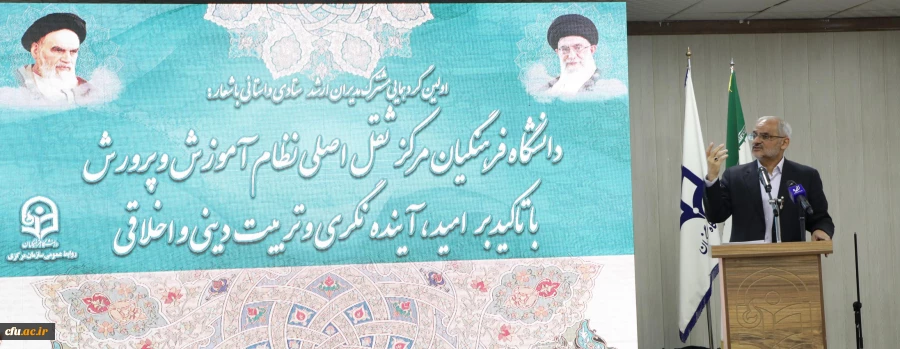 اولین گردهمایی مشترک مدیران ارشد ستادی و استانی با شعار:
دانشگاه فرهنگیان مرکز ثقل اصلی نظام آموزش و پرورش
با تاکید بر امید، آینده نگری و تربیت دینی و اخلاقی
دانشگاه فرهنگیان
روابط عمومی سازمان مرکزی
cfu.ac.ir